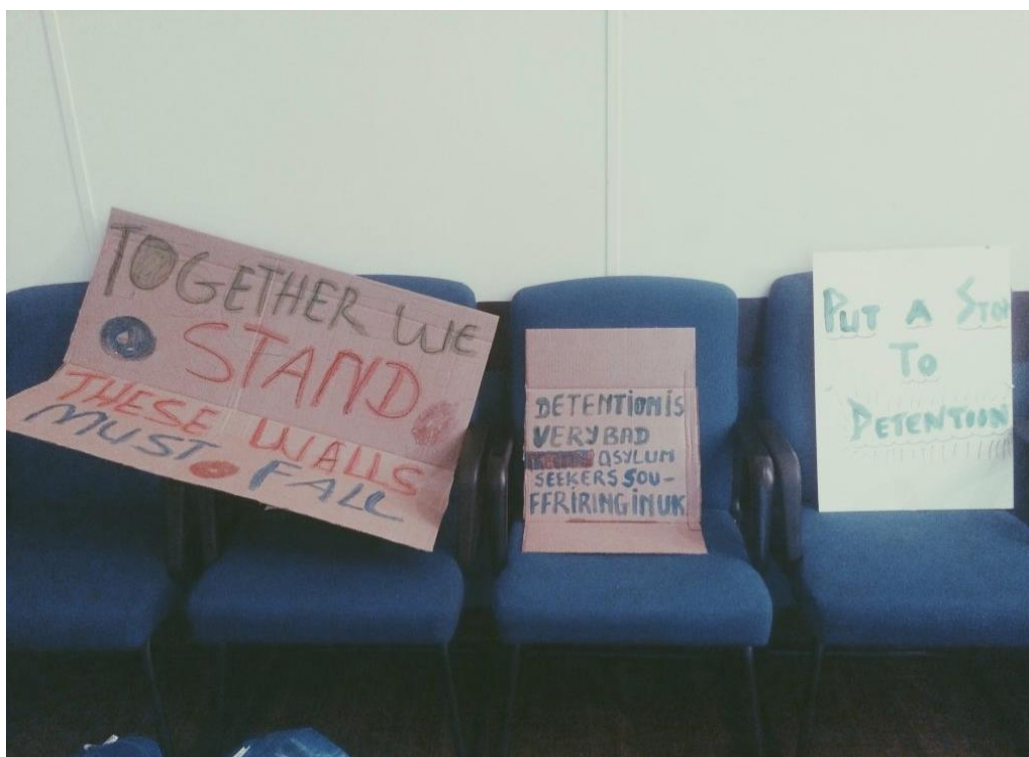 TOGETHER WE
STAND
THESE WALLS
MUST FALL
DETENTION IS
VERY BAD
ASYLUM
SEEKERS SOU-
FFRIRING IN UK
PUT A STOP
TO
DETENTION